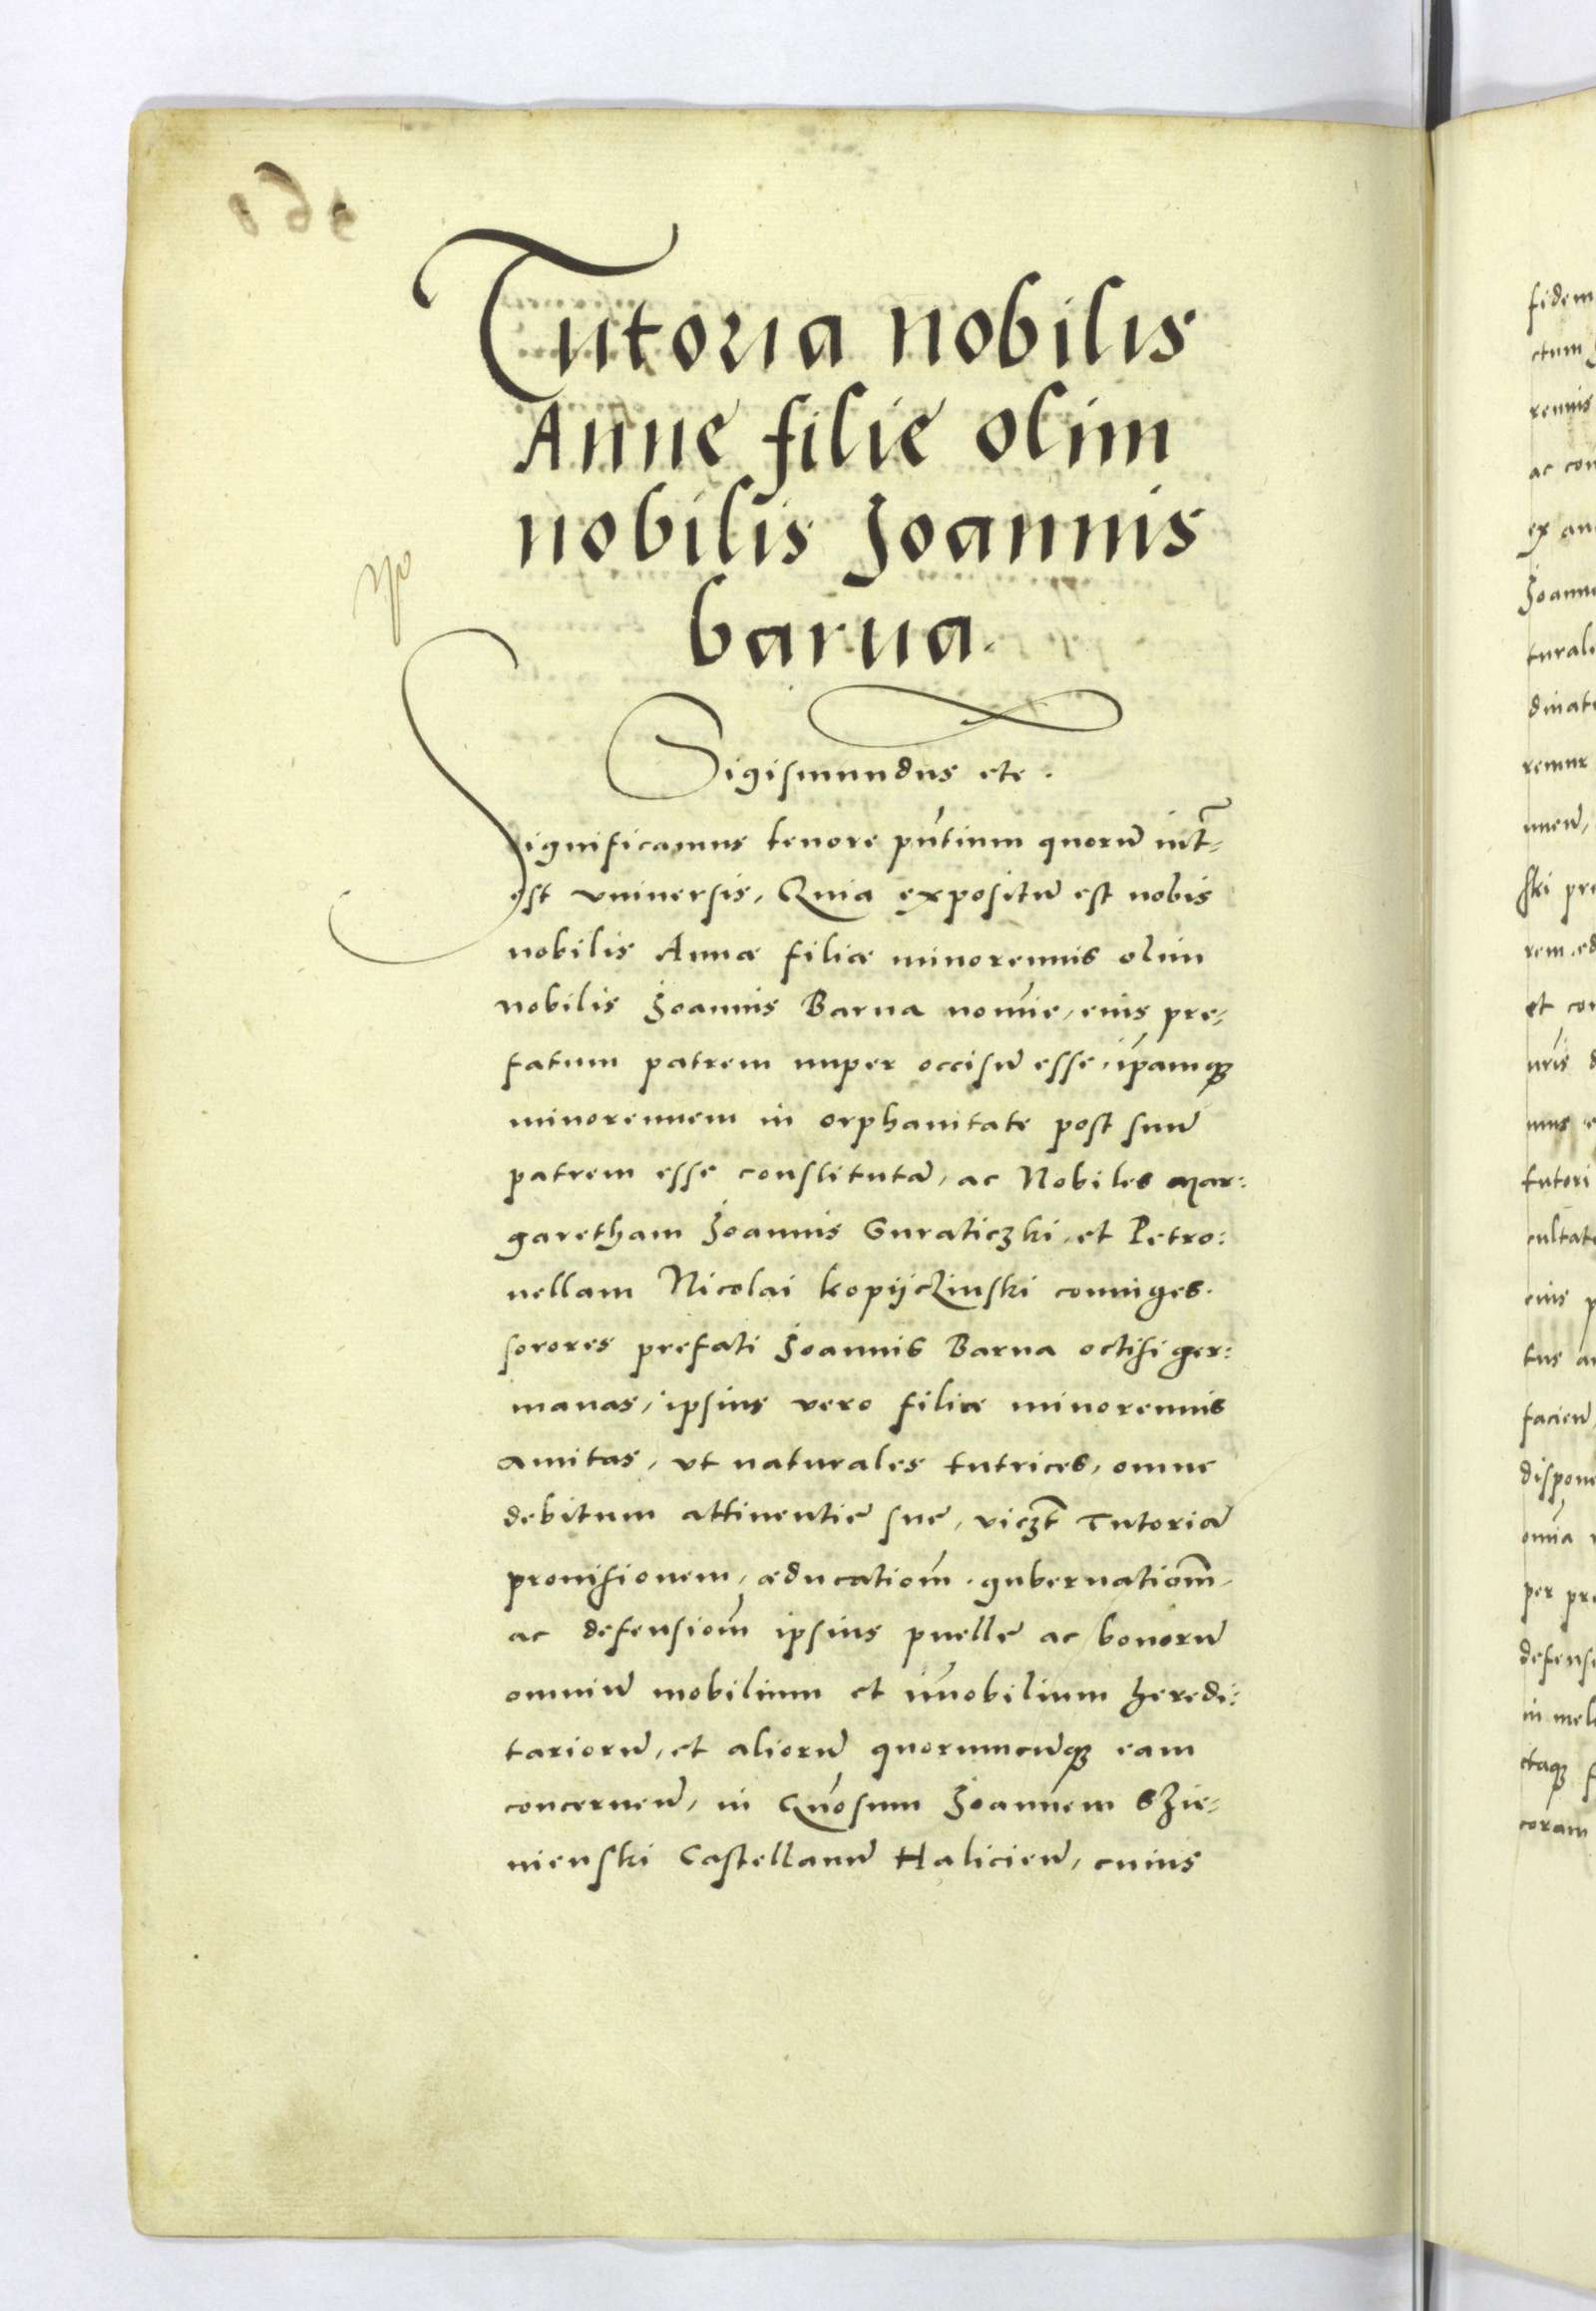 Tutoria nobilis
Anne filie olim
nobilis Joannis
barna.
Sigismundus etc.
Significamus tenore pñtium quorũ intr̃=
est vniuersis, Quia expositũ est nobis
nobilis Annæ filiæ minorennis olim
nobilis Joannis Barna nomĩe, eius pre=
fatum patrem nuper occisũ esse, ip̃amqꝫ
minorennem in orphanitate post suũ
patrem esse constitutã, ac Nobiles Mar:
garetham Joannis Guraticzki, et Petro:
nellam Nicolai kopijczinski coniuges.
sorores prefati Joannis Barna occisi ger:
manas, ipsius vero filiæ minorennis
amitas, vt naturales tutrices, omne
debitum attinentie sue, viczt Tutoriã
prouisionem, æducatiom̃. gubernatiom̃,
ac defensiom̃ ipsius puelle ac bonorũ
omniũ mobilium et im̃obilium heredi:
tariorũ, et aliorũ quorumcũqꝫ eam
concerneñ, in Gñosum Joannem Szie=
nienski Castellanũ Halicieñ, cuius
fidem
ctum
rennis
ac con
ex an
Joanne
turali
dinat
remur
nneñ,
ski pre
rem ed
et con
nr̃is d
mus e
tutori
cultat
eius p
tus a
facieñ
dispone
om̃ia
per pr
defensi
in mel
ctaqꝫ f
coram